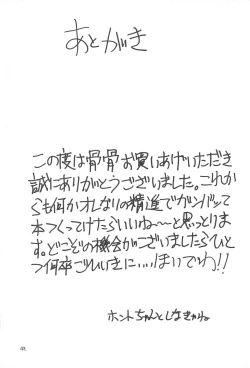 あとがき
この度は骨骨お買いあげいただき
誠にありがとうございました。これか
らも何かオレなりの精進でガンバッて
本つくってけたらいいね〜〜と思っとりま
す。どこぞの機会がございましたらひと
つ何卒ごひいきに・・・・ほいでわ!!
ホントちゃんとしなきゃね。